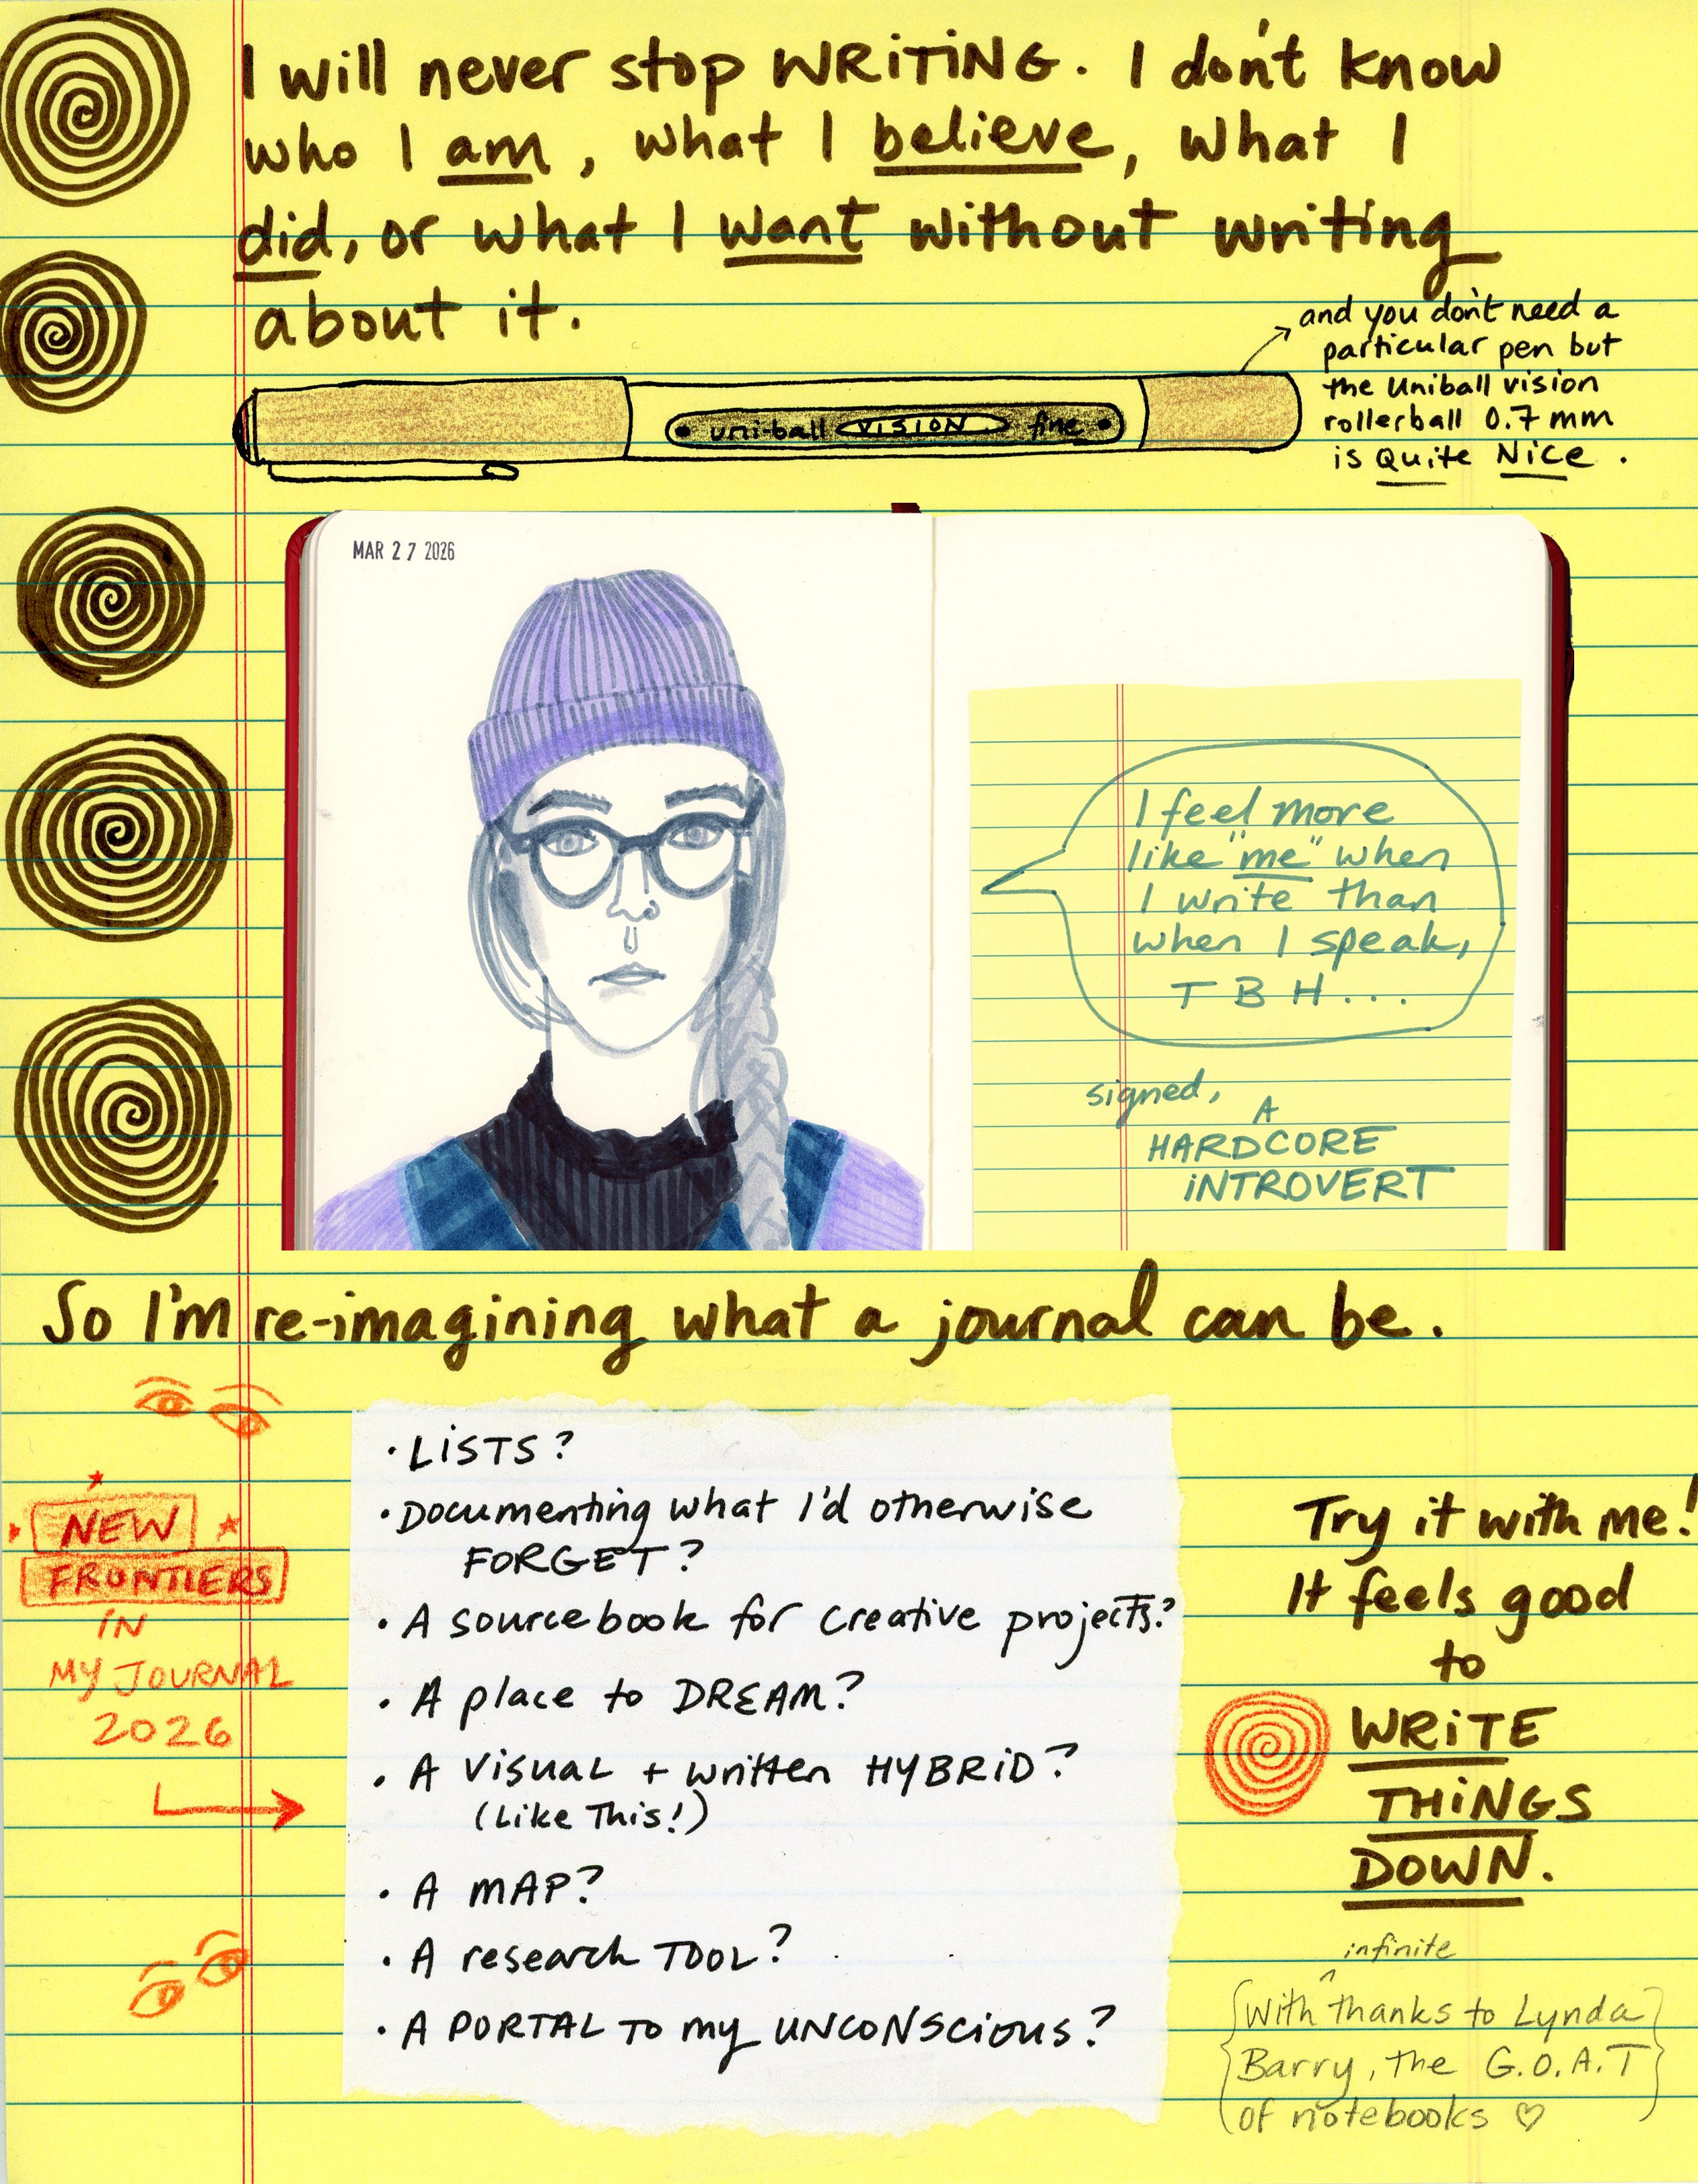 I will never stop WRiTiNG. I don't know
who I am, what I believe, what I
did, or what I want without writing
about it.
and you don't need a
particular pen but
the Uniball vision
rollerball 0.7 mm
is Quite Nice.
uni-ball VISION fine
MAR 27 2026
I feel more
like "me" when
I write than
when I speak,
TBH...
signed, A
HARDCORE
iNTROVERT
So I'm re-imagining what a journal can be.
NEW
FRONTIERS
iN
MY JOURNAL
2026
• LiSTS?
• Documenting what I'd otherwise
FORGET?
• A sourcebook for creative projects?
• A place to DREAM?
• A ViSUAL + written HYBRiD?
(Like This!)
• A MAP?
• A research TOOL?
• A PORTAL TO my UNCONSCiOUS?
Try it with me!
It feels good
to
WRiTE
THiNGS
DOWN.
infinite
{With ^ thanks to Lynda
Barry, the G.O.A.T
of notebooks ♡}